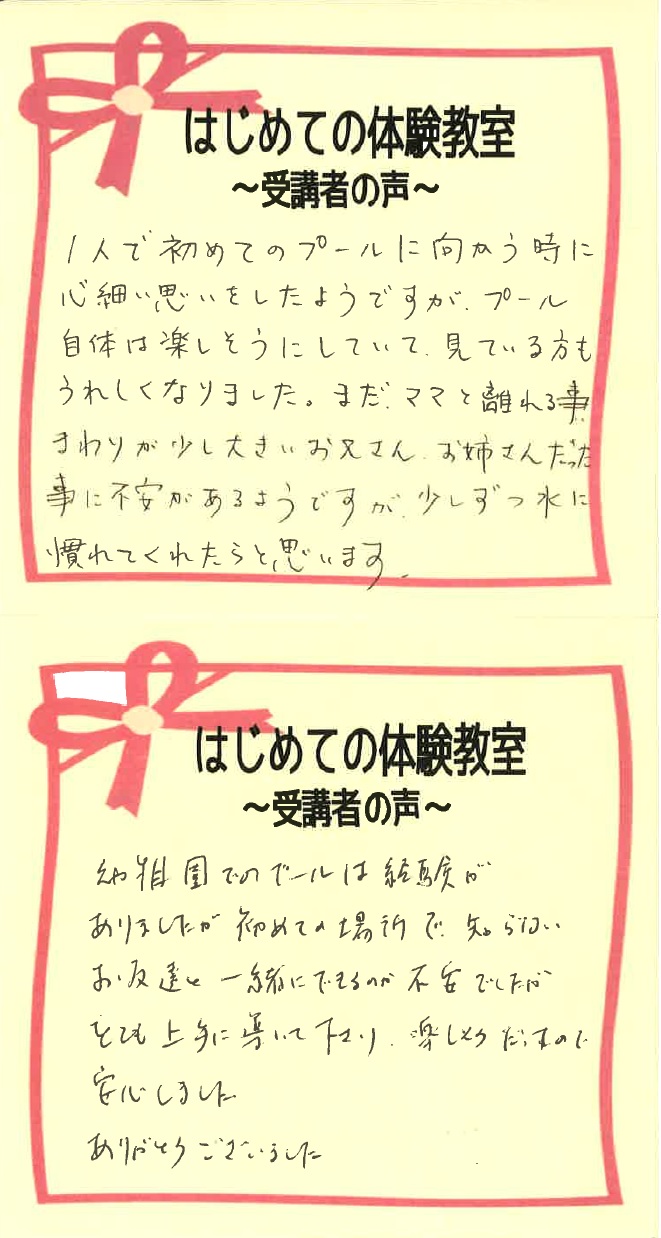 はじめての体験教室
～受講者の声～
1人で初めてのプールに向かう時に
心細い思いをしたようですが、プール
自体は楽しそうにしていて、見ている方も
うれしくなりました。まだ、ママと離れる事、
まわりが少し大きいお兄さん、お姉さんだった
事に不安があるようですが、少しずつ水に
慣れてくれたらと思います。
はじめての体験教室
～受講者の声～
幼稚園でのプールは経験が
ありましたが初めての場所で、知らない
お友達と一緒にできるのか不安でしたが
とても上手に導いて下さり、楽しそうだったので
安心しました
ありがとうございました